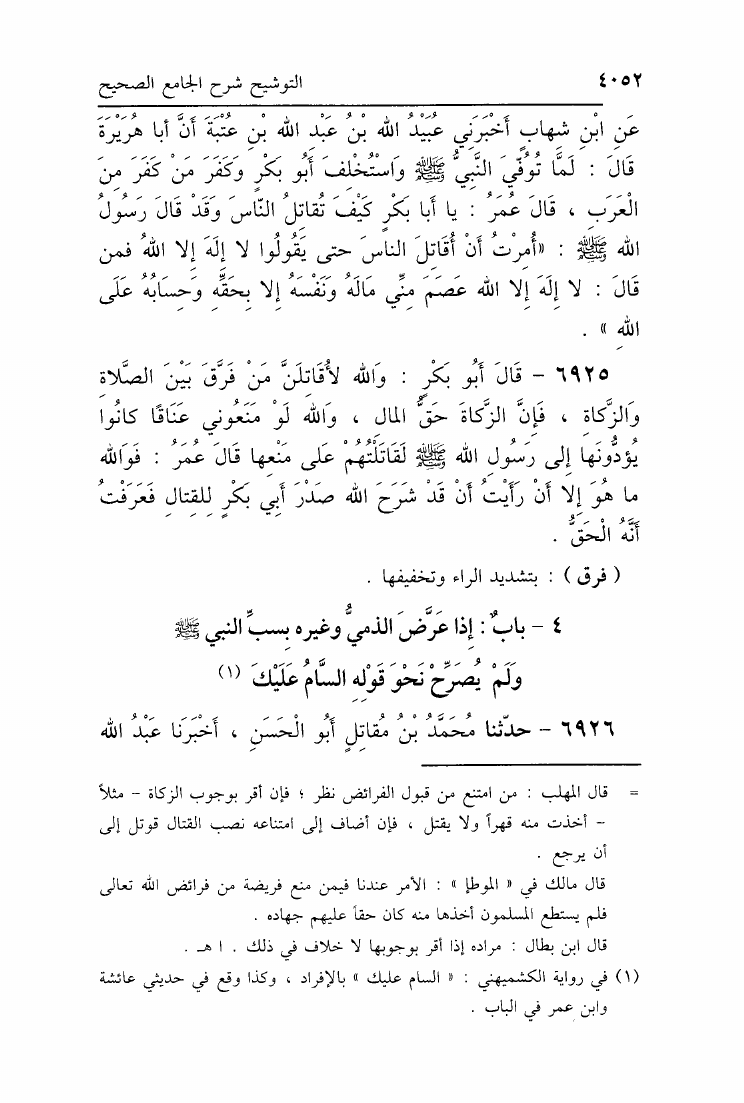 ٤٠٥٢ التوشيح شرح الجامع الصحيح
عَنِ ابْنِ شِهابٍ أَخْبَرَنِي عُبَيْدُ اللهِ بْنُ عَبْدِ اللهِ بْنِ عُتْبَةَ أَنَّ أبا هُرَيْرَةَ
قَالَ : لَمَّا تُوُفِّيَ النَّبِيُّ ﷺ وَاسْتُخْلِفَ أَبُو بَكْرٍ وَكَفَرَ مَنْ كَفَرَ مِنَ
الْعَرَبِ ، قَالَ عُمَرُ : يا أبا بَكْرٍ كَيْفَ تُقاتِلُ النَّاسَ وَقَدْ قَالَ رَسُولُ
اللهِ ﷺ : «أُمِرْتُ أَنْ أُقَاتِلَ الناسَ حتى يَقُولُوا لا إِلَهَ إِلا اللهُ فمن
قَالَ : لا إِلَهَ إِلا الله عَصَمَ مِنِّي مَالَهُ وَنَفْسَهُ إِلا بِحَقِّهِ وَحِسَابُهُ عَلَى
اللهِ » .
٦٩٢٥ – قَالَ أَبُو بَكْرٍ : وَاللهِ لأُقَاتِلَنَّ مَنْ فَرَّقَ بَيْنَ الصَّلاةِ
وَالزَّكاةِ ، فَإِنَّ الزَّكاةَ حَقُّ المالِ ، وَاللهِ لَوْ مَنَعُونِي عَنَاقًا كانُوا
يُؤَدُّونَها إلى رَسُولِ اللهِ ﷺ لَقَاتَلْتُهُمْ عَلى مَنْعِها قَالَ عُمَرُ : فَوَاللهِ
ما هُوَ إِلا أَنْ رَأَيْتُ أَنْ قَدْ شَرَحَ اللهُ صَدْرَ أَبِي بَكْرٍ لِلقِتالِ فَعَرَفْتُ
أَنَّهُ الْحَقُّ .
( فرق ) : بتشديد الراء وتخفيفها .
٤ – بابٌ : إِذا عَرَّضَ الذميُّ وغيره بسبِّ النبي ﷺ
وَلَمْ يُصَرِّحْ نَحْوَ قَوْلِهِ السَّامُ عَلَيْكَ (١)
٦٩٢٦ – حدّثنا مُحَمَّدُ بْنُ مُقاتِلٍ أَبُو الْحَسَنِ ، أَخْبَرَنا عَبْدُ اللهِ
= قال المهلب : من امتنع من قبول الفرائض نظر ؛ فإن أقر بوجوب الزكاة – مثلاً
– أخذت منه قهراً ولا يقتل ، فإن أضاف إلى امتناعه نصب القتال قوتل إلى
أن يرجع .
قال مالك في « الموطإ » : الأمر عندنا فيمن منع فريضة من فرائض الله تعالى
فلم يستطع المسلمون أخذها منه كان حقاً عليهم جهاده .
قال ابن بطال : مراده إذا أقر بوجوبها لا خلاف في ذلك . ا هـ .
(١) في رواية الكشميهني : « السام عليك » بالإفراد ، وكذا وقع في حديثي عائشة
وابن عمر في الباب .